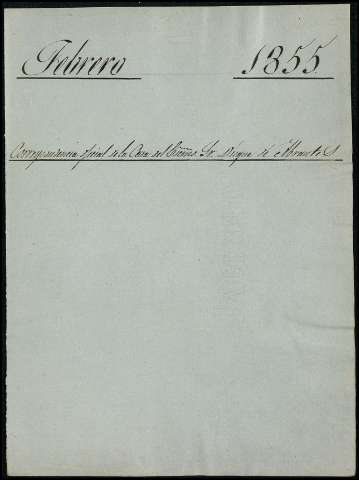 Febrero 1855.
Correspondencia oficial de la Casa del Excmo. Sr. Duque de Abrantes